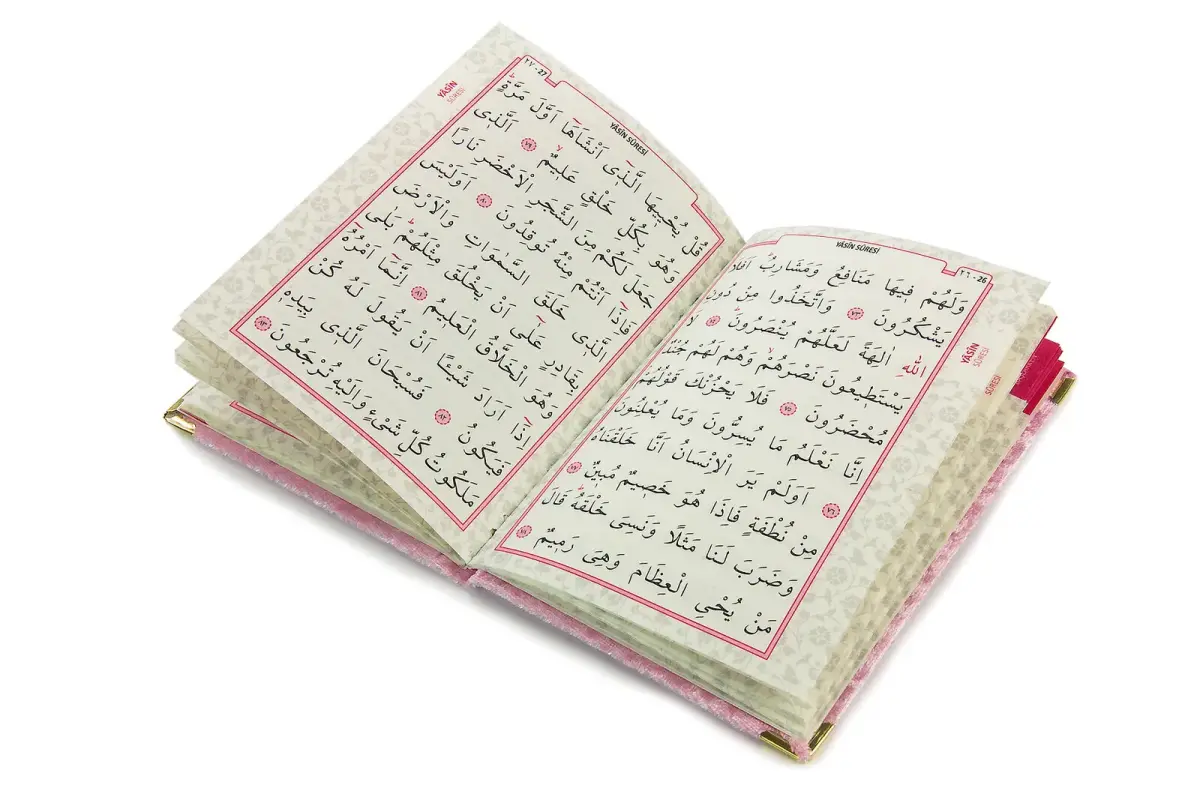 YÂSÎN SÛRESİ
٢٦ - 26
YÂSÎN
SÛRESİ
SÛRESİ
وَلَهُمْ فٖيهَا مَنَافِعُ وَمَشَارِبُ اَفَلَا
يَشْكُرُونَ ﴿٧٣﴾ وَاتَّخَذُوا مِنْ دُونِ
اللّٰهِ اٰلِهَةً لَعَلَّهُمْ يُنْصَرُونَ ﴿٧٤﴾ لَا
يَسْتَطٖيعُونَ نَصْرَهُمْ وَهُمْ لَهُمْ جُنْدٌ
مُحْضَرُونَ ﴿٧٥﴾ فَلَا يَحْزُنْكَ قَوْلُهُمْ
اِنَّا نَعْلَمُ مَا يُسِرُّونَ وَمَا يُعْلِنُونَ
﴿٧٦﴾ اَوَلَمْ يَرَ الْاِنْسَانُ اَنَّا خَلَقْنَاهُ
مِنْ نُطْفَةٍ فَاِذَا هُوَ خَصٖيمٌ مُبٖينٌ ﴿٧٧﴾
وَضَرَبَ لَنَا مَثَلًا وَنَسِىَ خَلْقَهُ قَالَ
مَنْ يُحْيِ الْعِظَامَ وَهِىَ رَمٖيمٌ ﴿٧٨﴾
٢٧ - 27
YÂSÎN SÛRESİ
YÂSÎN
SÛRESİ
قُلْ يُحْيٖيهَا الَّذٖٓى اَنْشَاَهَٓا اَوَّلَ مَرَّةٍ
وَهُوَ بِكُلِّ خَلْقٍ عَلٖيمٌ ﴿٧٩﴾ اَلَّذٖى
جَعَلَ لَكُمْ مِنَ الشَّجَرِ الْاَخْضَرِ نَارًا
فَاِذَٓا اَنْتُمْ مِنْهُ تُوقِدُونَ ﴿٨٠﴾ اَوَلَيْسَ
الَّذٖى خَلَقَ السَّمٰوَاتِ وَالْاَرْضَ
بِقَادِرٍ عَلٰٓى اَنْ يَخْلُقَ مِثْلَهُمْ بَلٰى
وَهُوَ الْخَلَّاقُ الْعَلٖيمُ ﴿٨١﴾ اِنَّمَٓا اَمْرُهُٓ
اِذَٓا اَرَادَ شَيْئًا اَنْ يَقُولَ لَهُ كُنْ
فَيَكُونُ ﴿٨٢﴾ فَسُبْحَانَ الَّذٖى بِيَدِهٖ
مَلَكُوتُ كُلِّ شَىْءٍ وَاِلَيْهِ تُرْجَعُونَ ﴿٨٣﴾